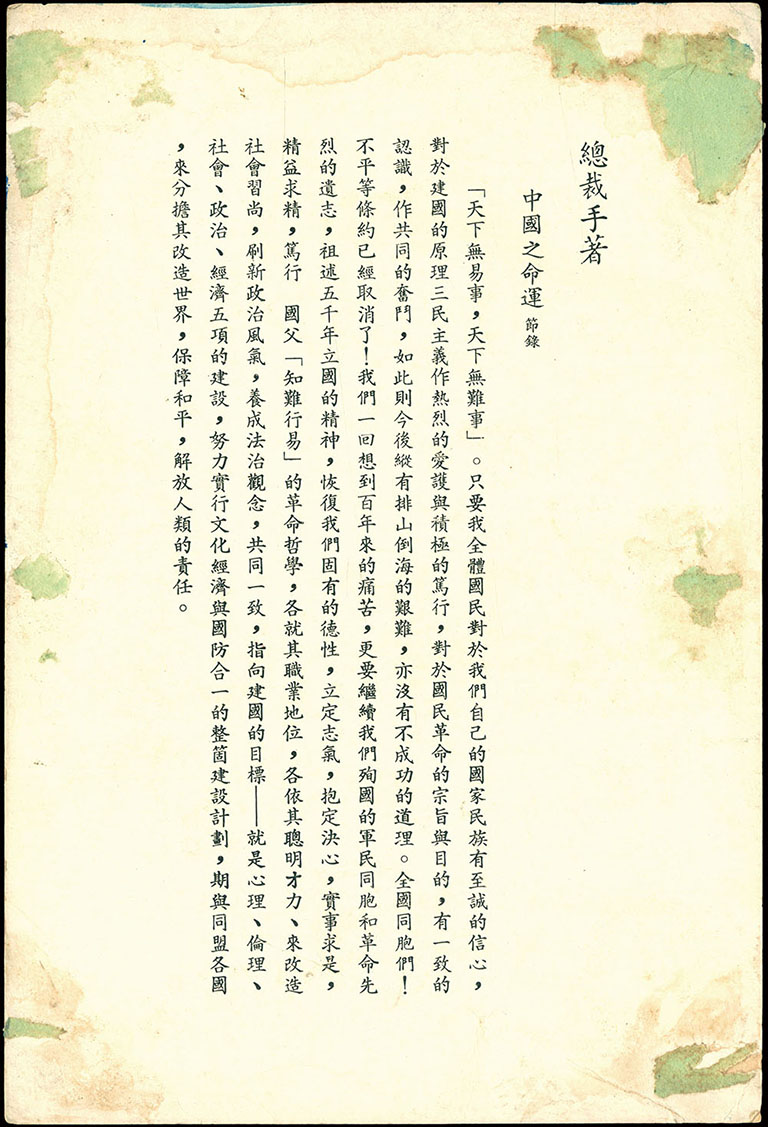 總裁手著
中國之命運 節錄
「天下無易事，天下無難事」。只要我全體國民對於我們自己的國家民族有至誠的信心，
對於建國的原理三民主義作熱烈的愛護與積極的篤行，對於國民革命的宗旨與目的，有一致的
認識，作共同的奮鬥，如此則今後縱有排山倒海的艱難，亦沒有不成功的道理。全國同胞們！
不平等條約已經取消了！我們一回想到百年來的痛苦，更要繼續我們殉國的軍民同胞和革命先
烈的遺志，祖述五千年立國的精神，恢復我們固有的德性，立定志氣，抱定決心，實事求是，
精益求精，篤行　國父「知難行易」的革命哲學，各就其職業地位，各依其聰明才力、來改造
社會習尚，刷新政治風氣，養成法治觀念，共同一致，指向建國的目標——就是心理、倫理、
社會、政治、經濟五項的建設，努力實行文化經濟與國防合一的整箇建設計劃，期與同盟各國
，來分擔其改造世界，保障和平，解放人類的責任。